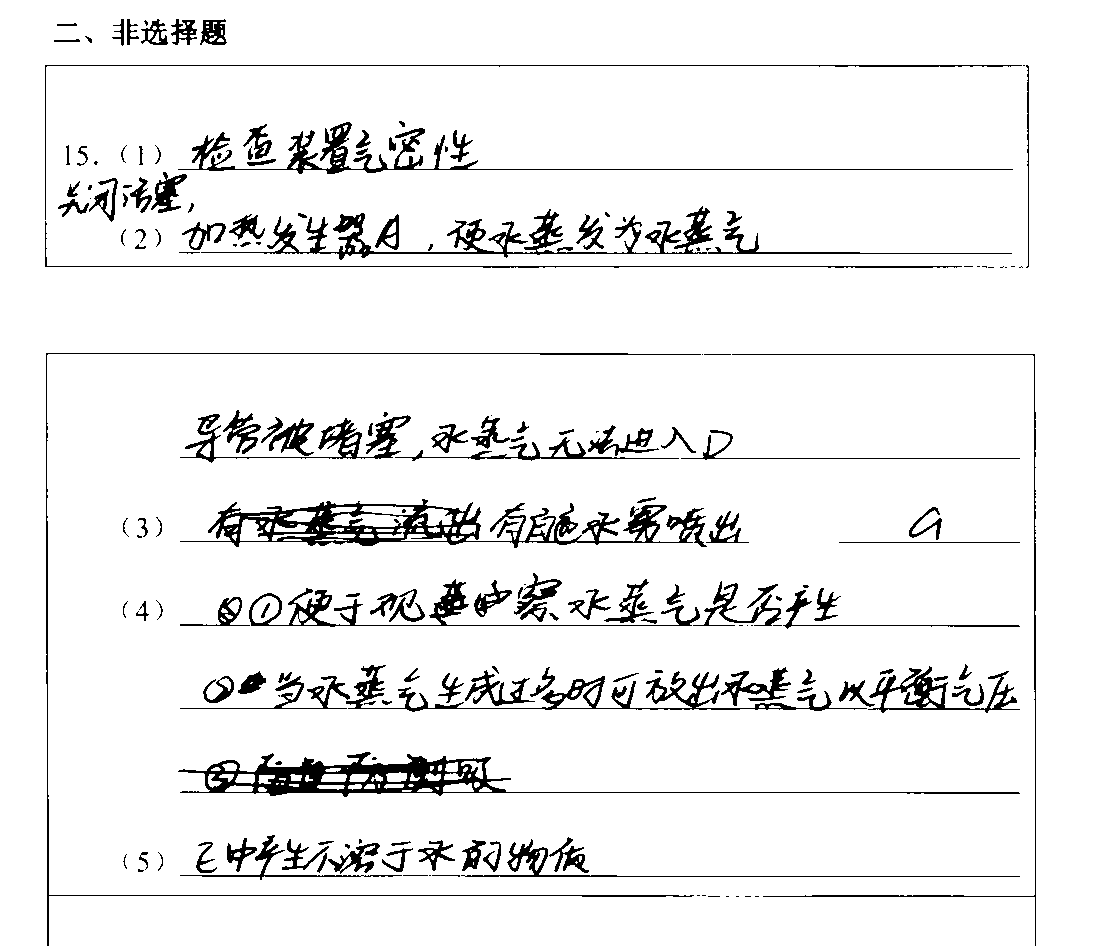 二、非选择题
15.（1）检查装置气密性
关闭活塞，
（2）加热发生器A，使水蒸发为水蒸气
导管被堵塞，水蒸气无法进入D
（3）有水雾喷出 a
（4）①便于观察水蒸气是否产生
②当水蒸气生成过多时可放出水蒸气以平衡气压
（5）E中产生不溶于水的物质